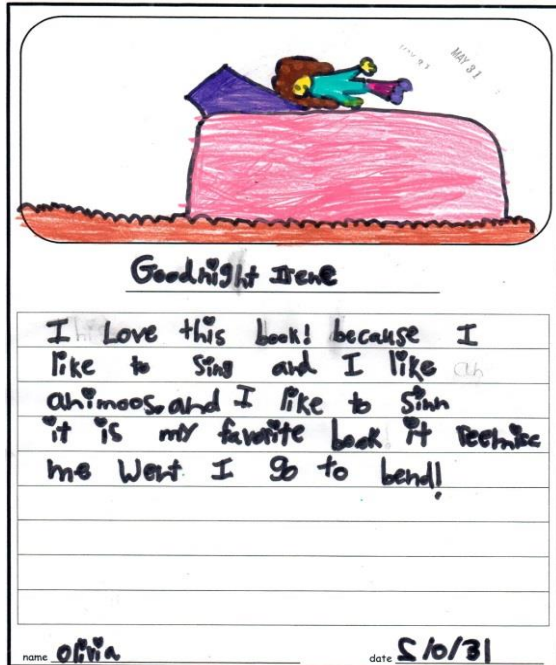 MAY 31
Goodnight Irene
I Love this book! because I
like to sing and I like
animoos. and I like to sinn
it is my favorite book it reemisc
me went I go to bend!
name Olivia
date 5/0/31